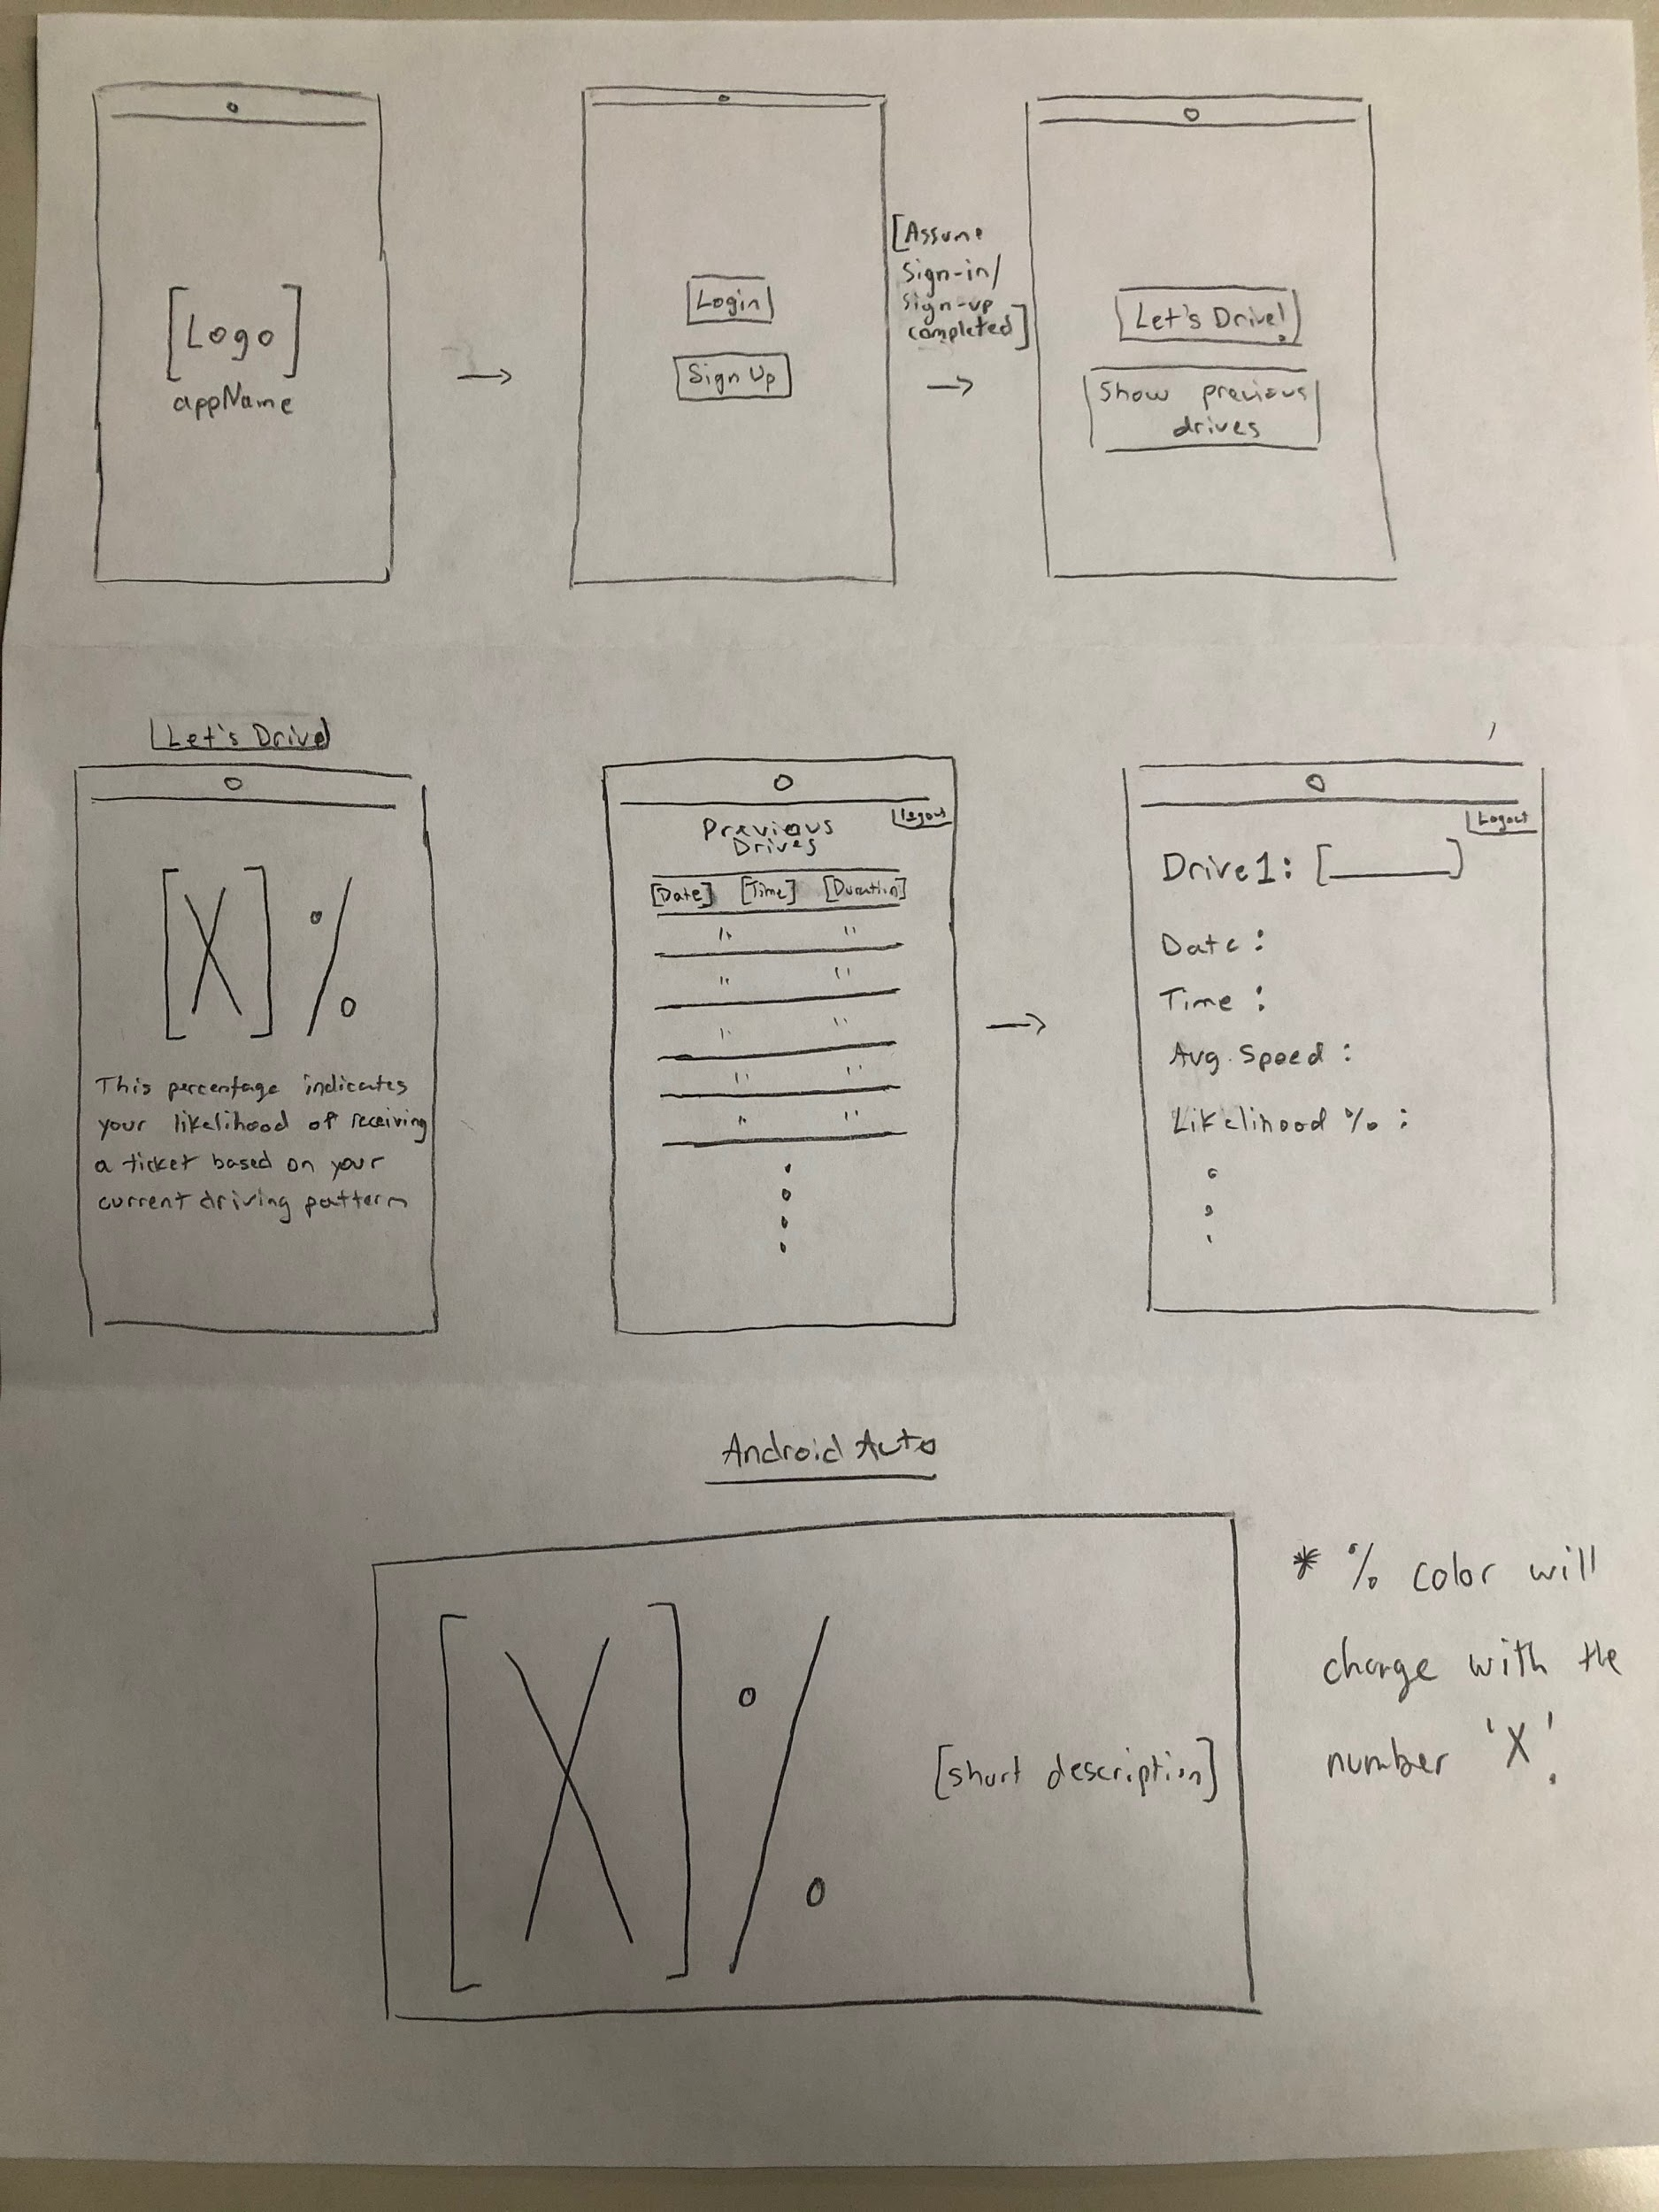 [Logo]
appName
Login
Sign Up
[Assume
Sign-in/
Sign-up
completed]
Let's Drive!
Show previous
drives
Let's Drive
[X] %
This percentage indicates
your likelihood of receiving
a ticket based on your
current driving pattern
Logout
Previous
Drives
[Date] [Time] [Duration]
" "
" "
" "
" "
" "
Logout
Drive1: [_____]
Date:
Time:
Avg. Speed:
Likelihood %:
Android Auto
[X] %
[short description]
* % color will
change with the
number 'X'.